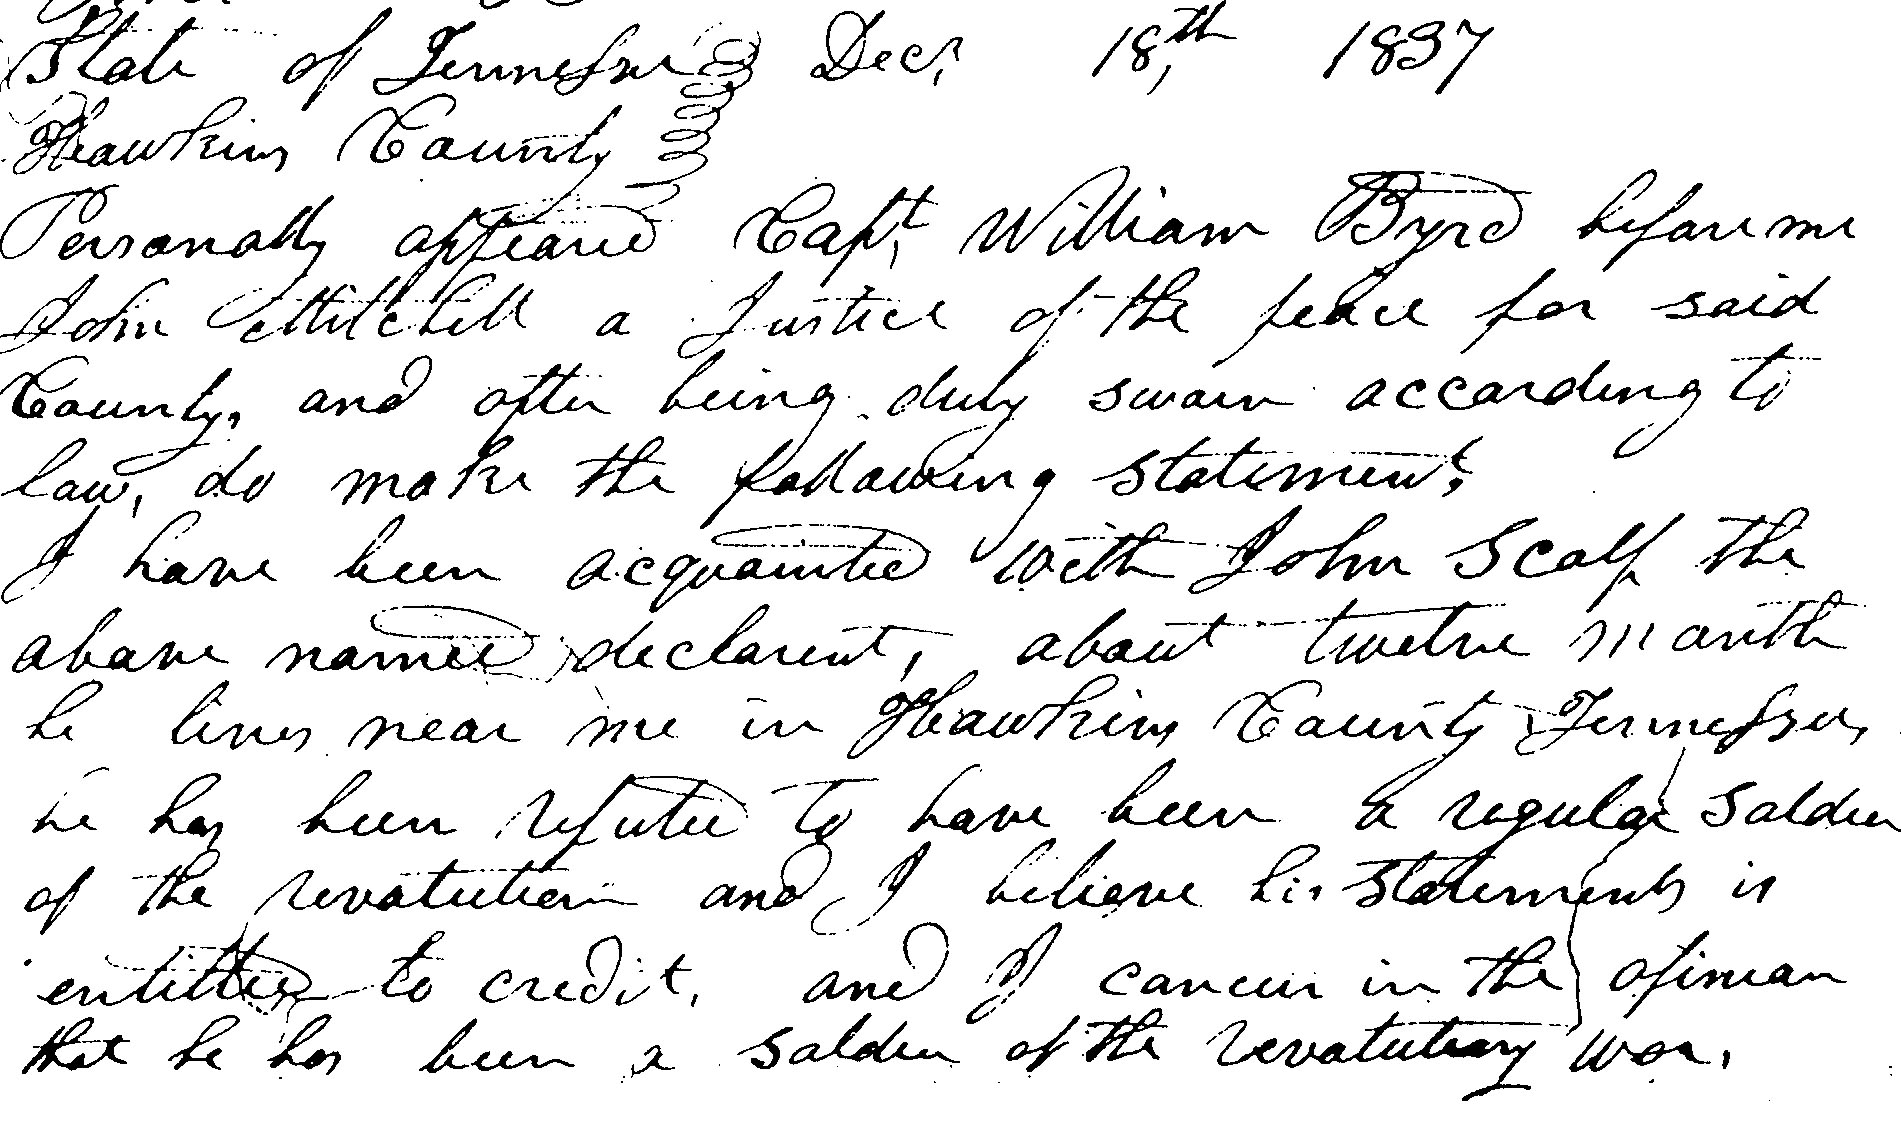 State of Tennessee Decr. 18th, 1837
Hawkins County
Personally appeared Capt. William Byrd before me
John Mitchell a Justice of the peace for said
County, and after being duly sworn according to
law, do make the following statement,
I have been acquainted with John Scalf the
above named declarent, about twelve month
he lives near me in Hawkins County Tennessee,
he has been reputed to have been a regular Soldier
of the revolution and I believe his statements is
entitled to credit, and I concur in the opinion
that he has been a soldier of the revolutionary war.